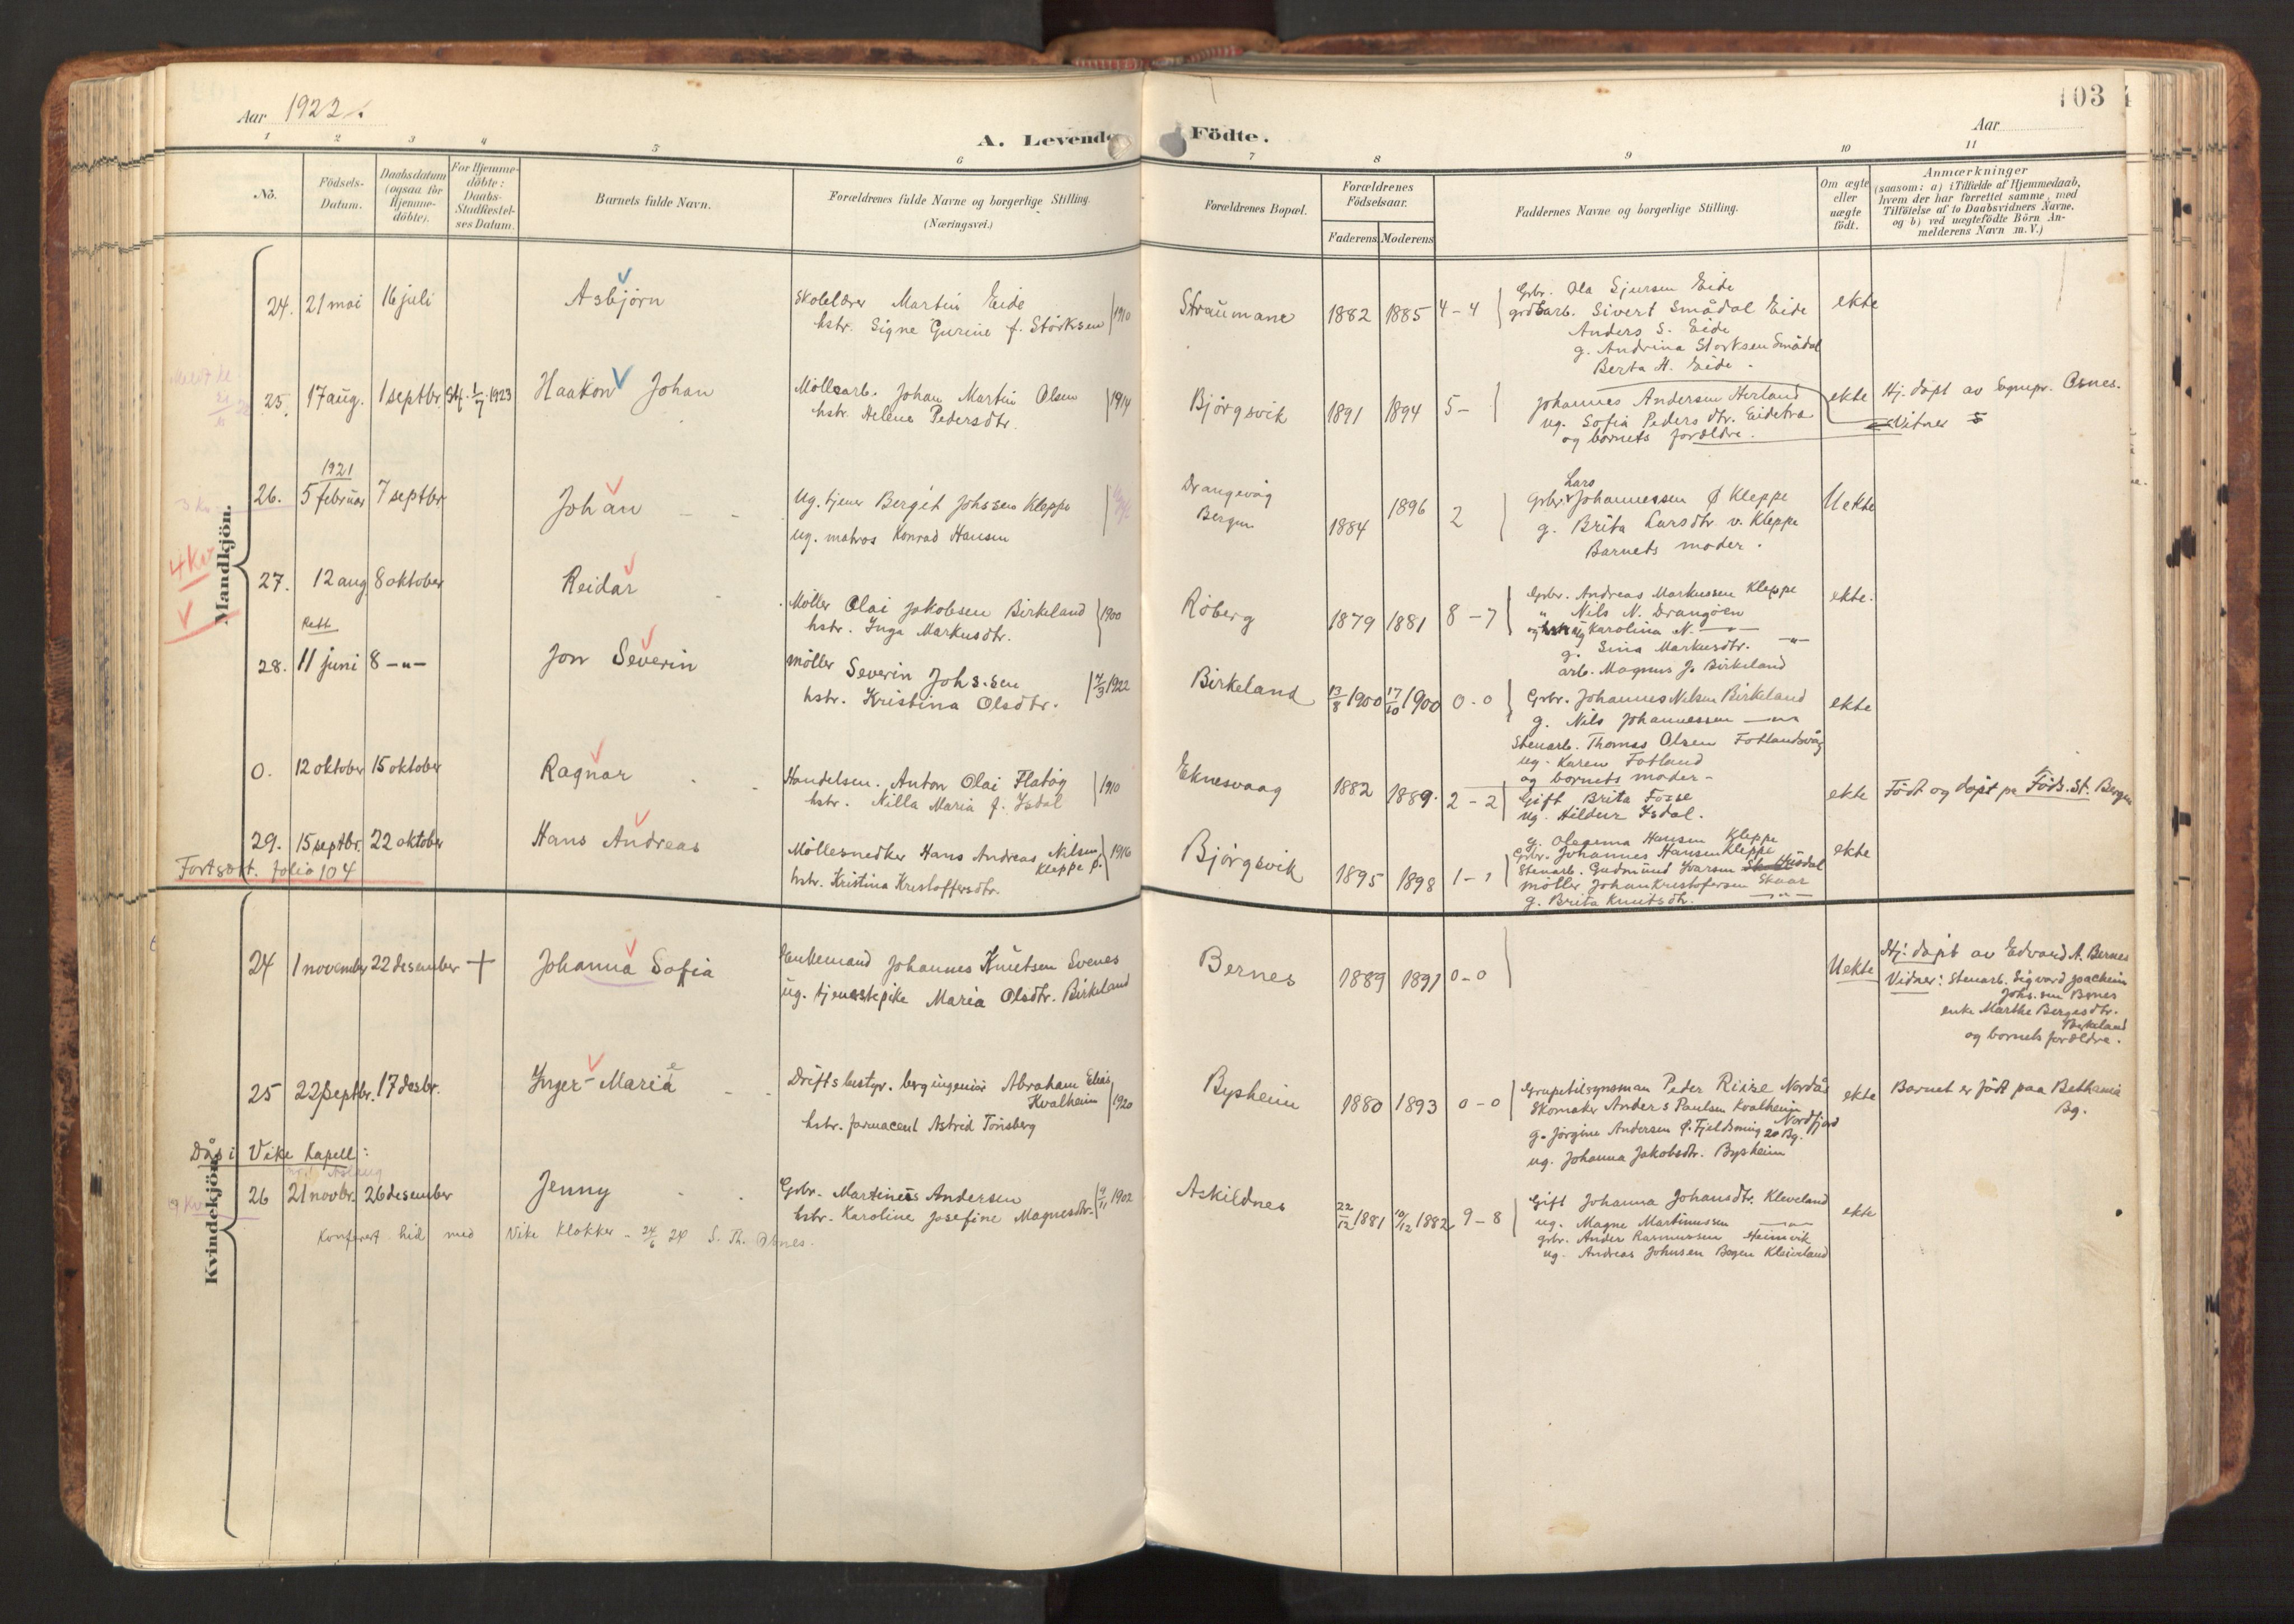 Aar 1922.
A. Levende Födte.
Aar
103
1 2 3 4 5 6 7 8 9 10 11
No.
Födsels-Datum.
Daabsdatum (ogsaa for Hjemme-döbte).
For Hjemme-döbte: Daabs-Stadfæstel-ses Datum.
Barnets fulde Navn.
Forældrenes fulde Navne og borgerlige Stilling.
(Næringsvei.)
Forældrenes Bopæl.
Forældrenes Födselsaar.
Faderens. Moderens.
Faddernes Navne og borgerlige Stilling.
Om ægte eller uægte födt.
Anmærkninger
(saasom: a) i Tilfælde af Hjemmedaab,
hvem der har forrettet samme, med
Tilföielse af to Daabsvidners Navne,
og b) ved uægtefödte Börn An-
melderens Navn m. V.)
Mandkjön.
24. 21 mai 16 juli Asbjörn
Skolelærer Martin Eide
hstr. Signe Gurine f. Störksen 1910
Straumane 1882 1885 4-4
Gbr. Ola Sjursen Eide
Sivert Smådal Eide
Anders S. Eide
g. Andrina Storksen Smådal
Berta H. Eide.
ekte
25. 17 aug. 1 septbr. Stf. 1/7 1923 Haakon Johan
Möllearb. Johan Martin Olsen
hstr. Helene Pedersdtr. 1914
Bjørgsvik 1891 1894 5-
Johannes Andersen Herland
ug. Sofia Pedersdtr. Eidetra
og barnets forældre.
ekte
Hj. døpt av Sognepr. Osnes.
Vitner
26. 1921
5 februar 7 septbr. Johan
Ug. tjener Bergit Johssen Kleppe
ug. matros Konrad Hansen
Drangevåg
Bergen
1884 1896 2
Lars
Gbr. Johannessen Ø Kleppe
g. Brita Larsdtr v. Kleppe
Barnets moder.
Uekte
4 kv.
27. 12 aug 8 oktober Reidar
Möller Olai Jakobsen Birkeland
hstr. Inga Markusdtr. 1900
Röberg 1879 1881 8-7
Gbr. Andreas Markussen Kleppe
" Nils N. Drangöen
Karolina N. —"—
g. Sina Markusdtr. —"—
arb. Magnus J. Birkeland
ekte.
Rett
28. 11 juni 8 -"- Jon Severin
möller Severin Johs.sen
hstr. Kristina Olsdtr. 4/3 1922
Birkeland 13/8 1900 17/10 1900 0-0
Gbr. Johannes Nilsen Birkeland
g. Nils Johannessen —"—
Stenarb. Thomas Olsen Fotlandsvåg
ug. Karen Fotland
og barnets moder-
ekte
0. 12 oktober 15 oktober Ragnar
Handelsm. Anton Olai Flatöy
hstr. Nilla Maria f. Isdal 1910
Eknesvaag 1882 1889. 2-2
Gift Brita Fosse
ug. Hildur Isdal.
ekte
Födt og døpt på Föds. St. Bergen
29. 15 septbr. 22 oktober Hans Andreas
Möllesnedker Hans Andreas Nilsen
Kleppe
hstr. Kristina Kristoffersdtr. 1916
Bjørgsvik 1895 1898 1-1
g. Olegama Hansen Kleppe
Gbr. Johannes Hansen Kleppe
Stenarb. Gudmund Ivarsen
möller Johan Kristofersen Skaar
g. Brita Knutsdtr. —"—
ekte
Fortsatt. folio 104
Kvindekjön.
24 1 november 22 desember + Johanna Sofia
Enkemand Johannes Knutsen Svenes
ug. tjenestepike Maria Olsdtr. Birkeland
Bernes 1889 1891 0-0
Uekte
Hj. døpt av Edvard A. Bernes
Vidner: Stenarb. Sigvard Joachim
Johs.sen Bernes
enke Marthe Bergesdtr.
Birkeland
og barnets forældre.
25 22 septbr. 17 desbr. Inger-Marie
Driftsbestyr. bergingeniör Abraham Elias
Kvalheim 1920
hstr. farmaceut Astrid Tönsberg
Bysheim 1880 1893 0-0
Grupetilsynsman Peder Riise Nordås
Skomaker Anders Paulsen Kvalheim
Nordfjord
g. Jørgine Andersen f. Fjeldsmug 20 Bg.
ug. Johanna Jakobsdtr. Bysheim
ekte
Barnet er född paa Bethania
Bg.
Dåp i Vike Kapell:
26 21 novbr. 26 desember Jenny
Gbr. Martines Andersen
hstr. Karoline Josefine Magnesdtr. 4/11 1902
Askildnes 22/12 1881 10/12 1882 9-8
Gift Johanna Johansdtr. Kleveland
ug. Magne Martinussen —"—
gbr. Ander Rasmussen Heimvik
ug. Andreas Johnsen Bogen Kleiveland
ekte
Konferert hid med Vike Klokker - 24/6 24 S. Th. Osnes.